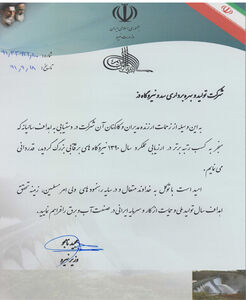 جمهوری اسلامی ایران
وزارت نیرو
شرکت تولید و بهره برداری سد و نیروگاه دز
به این وسیله از زحمات ارزنده مدیران و کارکنان آن شرکت در دستیابی به اهداف سالیانه که
منجر به کسب رتبه برتر در ارزیابی عملکرد سال ۱۳۹۰ نیروگاه های برقابی بزرگ گردید، قدردانی
می نمایم.
امید است با توکل به خداوند متعال و در سایه رهنمودهای ولی امر مسلمین، زمینه تحقق
اهداف سال تولید ملی و حمایت از کار و سرمایه ایرانی در صنعت آب و برق را فراهم نمایید.
مجید نامجو
وزیر نیرو